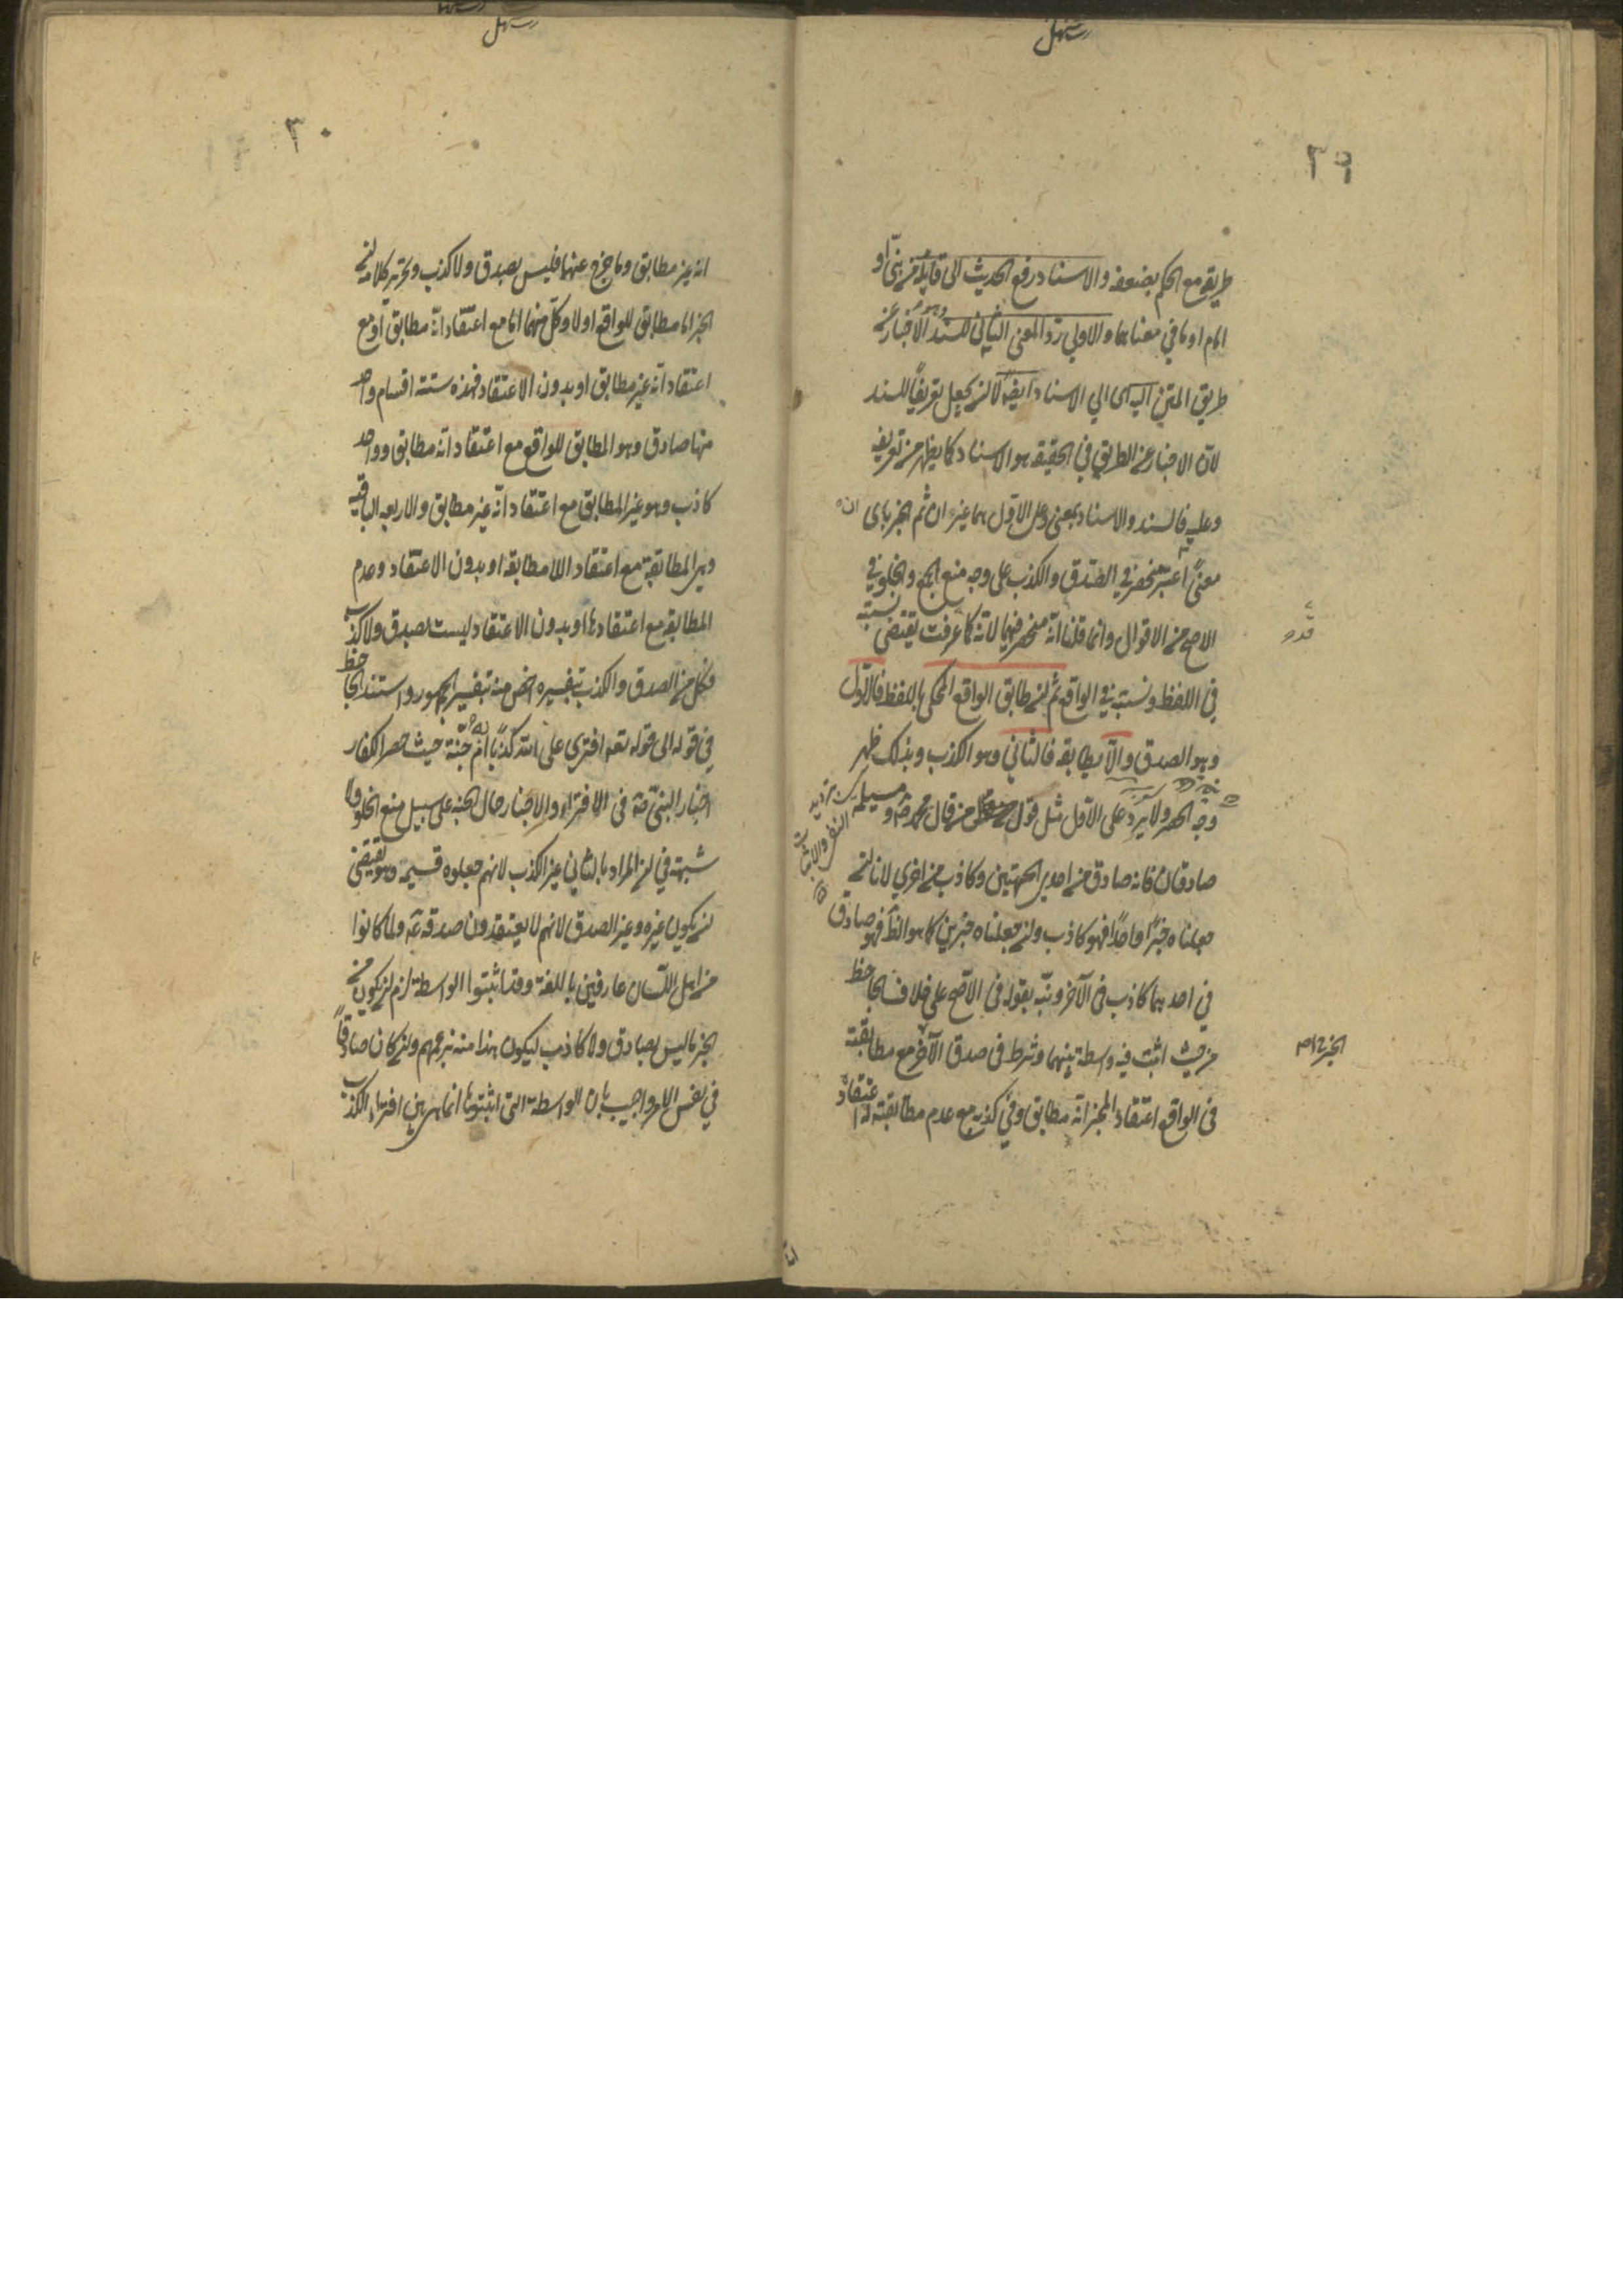 ٢٩
طريقه مع الحكم بضعفه والاسناد رفع الحديث الى قايله من نبيّ او
امام او ما في معناهما والاولي ردّ المعنى الثاني للسند وهو الاخبار عن
طريق المتن اليه اي الي الاسناد ايضا لا ان يجعل تعريفًا للسند
لان الاخبار عن الطريق في الحقيقة هو الاسناد كما يظهر من تعريفه
وعليه فالسند والاسناد بمعنى وعلى الاوّل هما غيران ثم الخبر باي
معنىً اعتبر منحصر في الصّدق والكذب على وجه منع الجمع والخلو في
الاصح من الاقوال وانما قلنا انه منحصر فيهما لانّه كما عرفت يقتضى نسبته
في اللفظ ونسبته في الواقع ثم ان طابق الواقع المحكي باللفظ فالاوّل
وهو الصدق والّا يطابقه فالثاني وهو الكذب وبذلك ظهر
وجه الحصر ولا يرد على الاوّل مثل قول من قال محمد ص و مسيلمه
صادقان فانه صادق من احدى الجهتين وكاذب من اخرى لانا ان
جعلناه خبرًا واحدًا فهو كاذب وان جعلناه خبرين كما هو الظ فهو صادق
في احدهما كاذب في الآخر ونبّه بقوله في الاصّح على خلاف الجاحظ
من حيث اثبت فيه واسطة بينهما وشرط في صدق الخبر مع مطابقته
في الواقع اعتقاد المخبر انّه مطابق وفي كذبه مع عدم مطابقته له اعتقاد
٣٠
انه غير مطابق وما خرج عنهما فليس بصدق ولا كذب وتحرير كلامه ان
الخبر اما مطابق للواقع او لا وكلّ منهما اما مع اعتقاد انّه مطابق او مع
اعتقاد انّه غير مطابق او بدون الاعتقاد فهذه ستة اقسام واحد
منها صادق وهو المطابق للواقع مع اعتقاد انّه مطابق وواحد
كاذب وهو غير المطابق مع اعتقاد انّه غير مطابق والاربعه الباقيه
وهي المطابقة مع اعتقاد اللا مطابقه او بدون الاعتقاد وعدم
المطابقه مع اعتقادها او بدون الاعتقاد ليست بصدق ولا كذب
فكل من الصدق والكذب بتفسيره اخص منه بتفسير الجمهور واستند الجاحظ
في قوله الى قوله تعه افترى على الله كذبًا ام به جنّة حيث حصر الكفار
اخبار النبيّ ص في الافتراء والاخبار حال الجنه على سبيل منع الخلو ولا
شبهة في ان المراد بالثاني غير الكذب لانهم جعلوه قسيمه وهو يقتضى
ان يكون غيره وغير الصدق لانهم لا يعتقدون صدقه ع ولما كانوا
من اهل اللّسان عارفين باللغة وقد اثبتوا الواسطة لزم ان يكون من
الخبر ما ليس بصادق ولا كاذب ليكون هذا منه بزعمهم وان كان صادقًا
في نفس الامر واجيب بان الواسطة التي اثبتوها انما هي بين افتراء الكذب